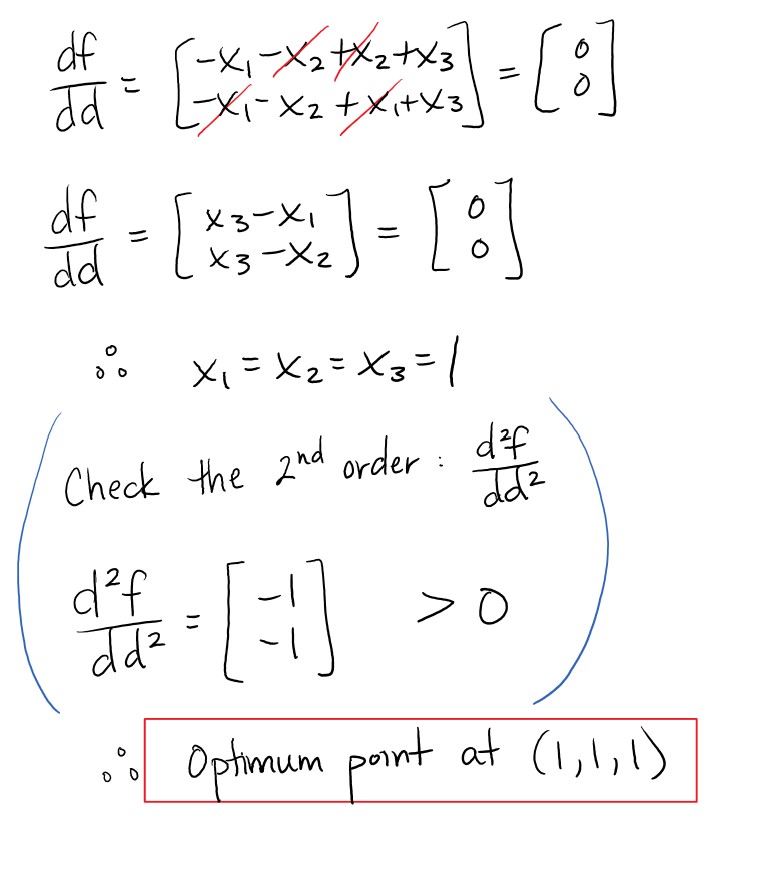 df/dd = [-x₁-x₂+x₂+x₃
-x₁-x₂+x₁+x₃] = [0
0]
df/dd = [x₃-x₁
x₃-x₂] = [0
0]
∴ x₁ = x₂ = x₃ = 1
Check the 2nd order: d²f/dd²
d²f/dd² = [-1
-1] > 0
∴ Optimum point at (1,1,1)